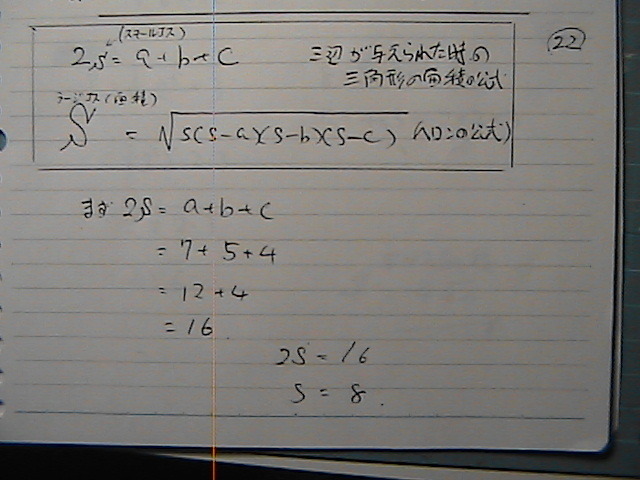 (スモールエス)
2s = a+b+c 三辺が与えられた時の
三角形の面積の公式
22
ラージエス(面積)
S = √s(s-a)(s-b)(s-c) (ヘロンの公式)
まず 2s = a+b+c
= 7+5+4
= 12+4
= 16
2s = 16
s = 8.